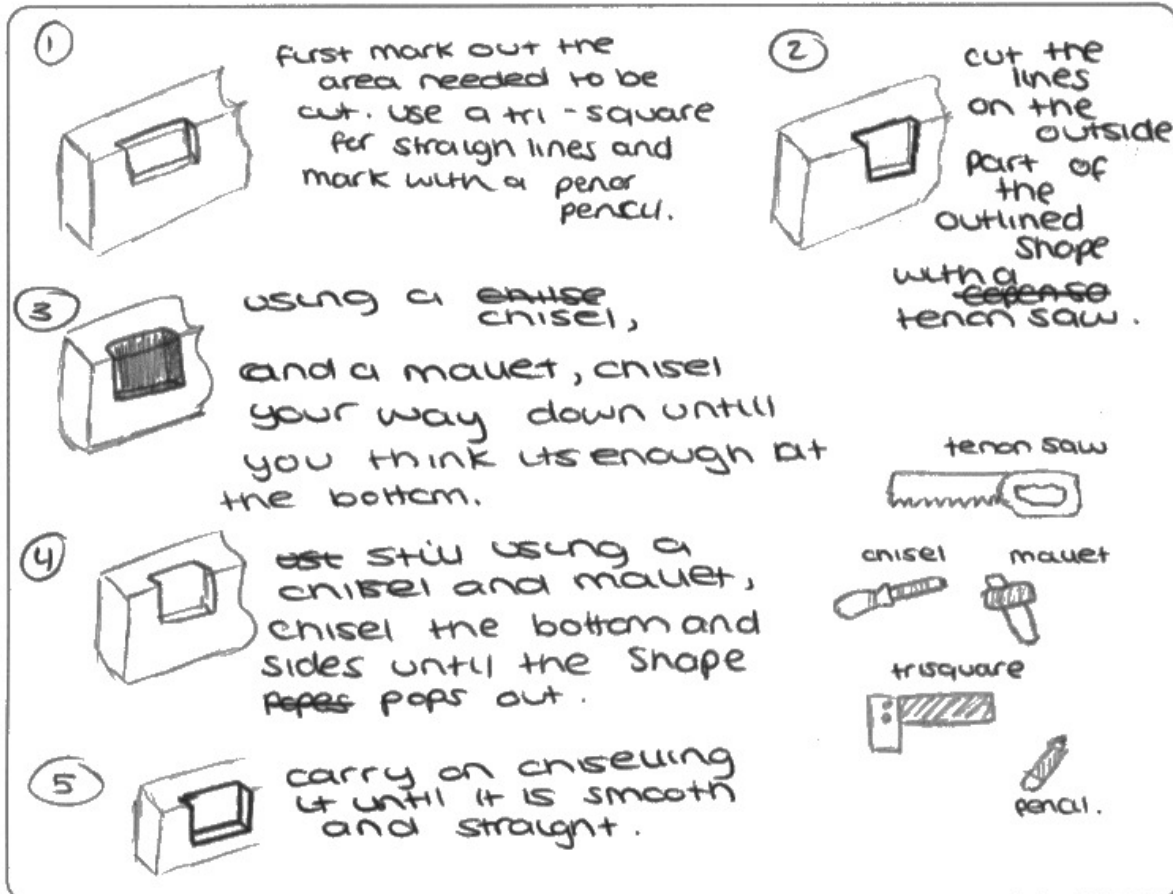 1
first mark out the
area needed to be
cut. use a tri-square
for straign lines and
mark with a pen or
pencil.
2
cut the
lines
on the
outside
part of
the
outlined
shape
with a
tenon saw.
3
using a chise
chisel,
and a mallet, chisel
your way down untill
you think its enough at
the bottom.
4
ust still using a
chisel and mallet,
chisel the bottom and
sides until the shape
popes pops out.
5
carry on chiselling
it until it is smooth
and straight.
tenon saw
chisel mallet
trisquare
pencil.